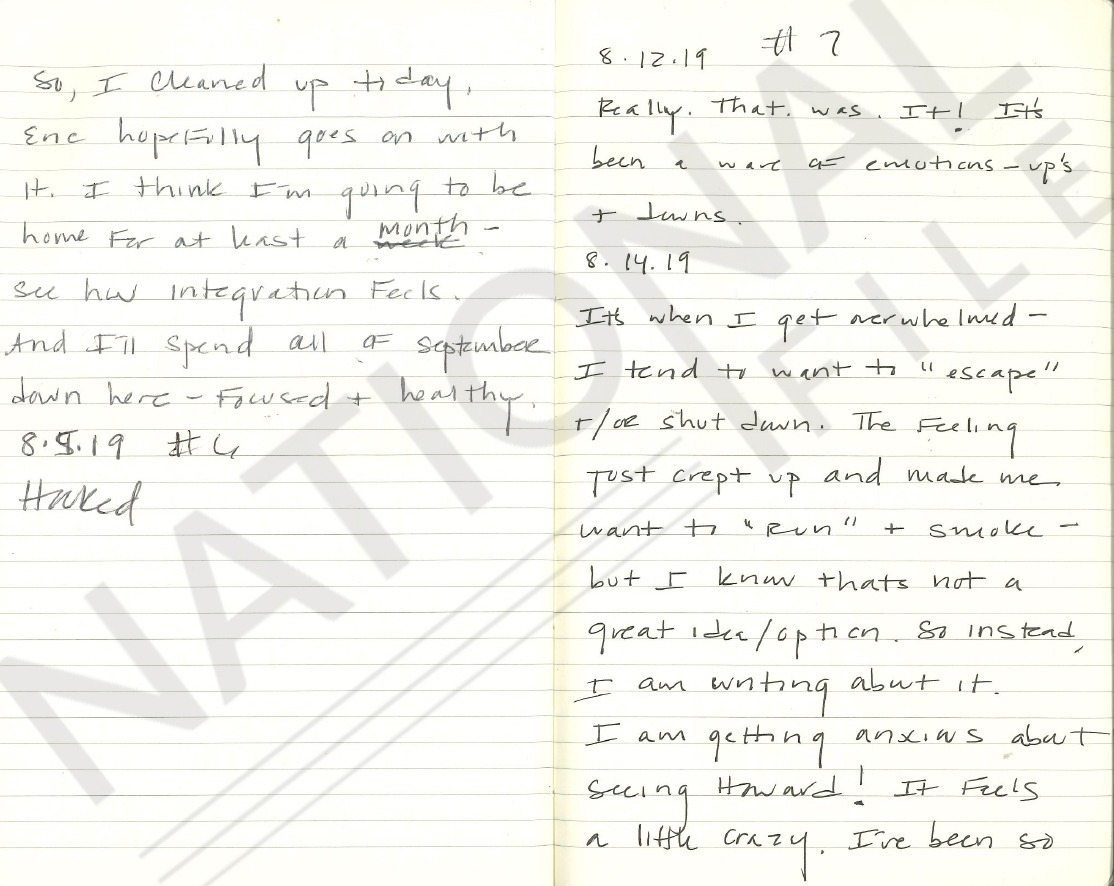 So, I cleaned up today,
Eric hopefully goes on with
it. I think I'm going to be
home for at least a month -
week
see how integration feels.
And I'll spend all of september
down here - Focused + healthy.
8.5.19 #6
Hooked
8.12.19 #7
Really. That. was. It! It's
been a wave of emotions - up's
+ downs.
8.14.19
Its when I get overwhelmed -
I tend to want to "escape"
+/or shut down. The feeling
just crept up and made me
want to "Run" + smoke -
but I know thats not a
great idea/option. So instead,
I am writing about it.
I am getting anxious about
seeing Howard! It feels
a little crazy. I've been so
NATIONAL
FILE